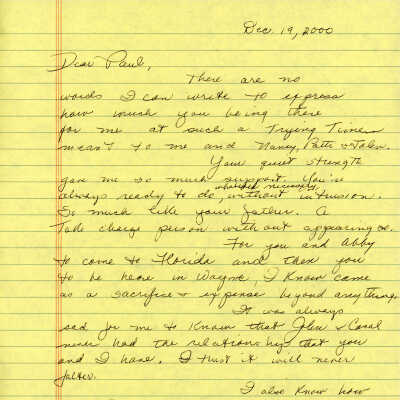 Dec. 19, 2000
Dear Paul,
There are no
words I can write to express
how much you being there
for me at such a Trying Time
meant to me and Nancy, Patti & John.
Your quiet strength
gave me so much support. You've
always ready to do, whatever necessary, without intrusion.
So much like your father. A
Take charge person without appearing so.
For you and Abby
to come to Florida and then you
to be here in Wayne, I know came
as a sacrifice & expense beyond anything.
It was always
sad for me to know that John & Carol
never had the relationship that you
and I have. I trust it will never
falter.
I also know how